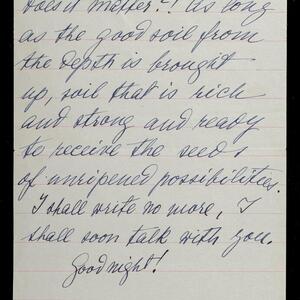 does it matter?! As long
as the good soil from
the depth is brought
up, soil that is rich
and strong and ready
to receive the seeds
of unripened possibilities.
I shall write no more, I
shall soon talk with you.
Good night!